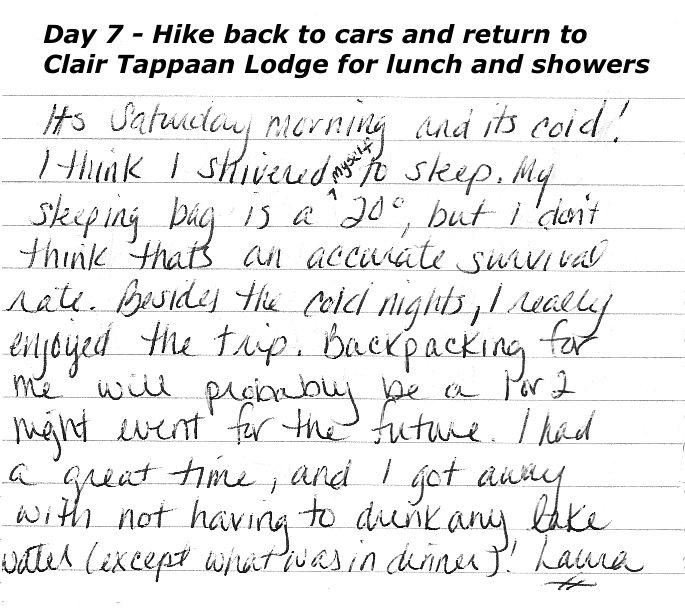 Day 7 - Hike back to cars and return to
Clair Tappaan Lodge for lunch and showers
Its Saturday morning and its cold!
I think I shivered myself to sleep. My
sleeping bag is a 20°, but I don't
think thats an accurate survival
rate. Besides the cold nights, I really
enjoyed the trip. Backpacking for
me will probably be a 1 or 2
night event for the future. I had
a great time, and I got away
with not having to drink any lake
water (except what was in dinner)! Laura